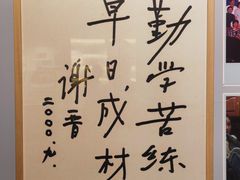 勤学苦练
早日成材
谢晋
二〇〇〇.九.